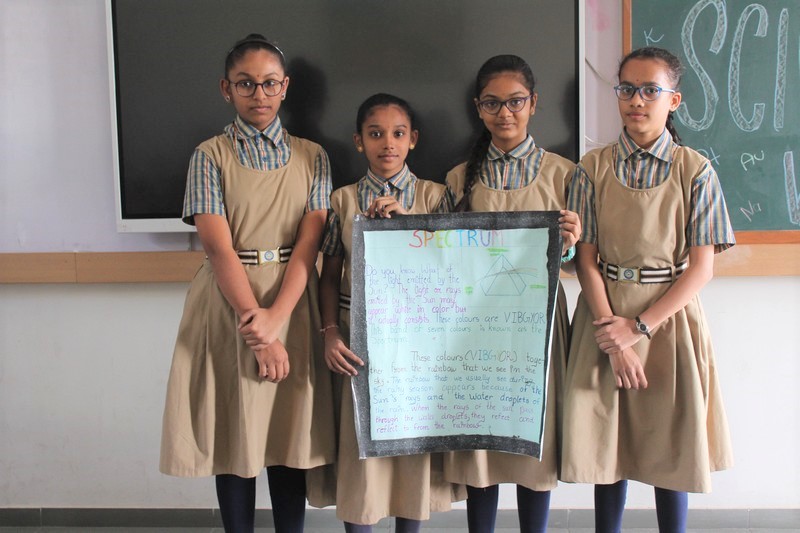 SPECTRUM
Do you know what is
the light emitted by the
Sun? The light or rays
emitted by the Sun may
appear white in color but
actually consists
These colours are VIBGYOR
This band of seven colours is known as the
These colours (VIBGYOR) toget
ther from the rainbow that we see in the
sky. The rainbow that we usually see during
the rainy season appears because of the
Sun's rays and the water droplets of
the rain when the rays of the sun pass
through the water droplets, they reflect and
refract to from the rainbow
SCI
Au